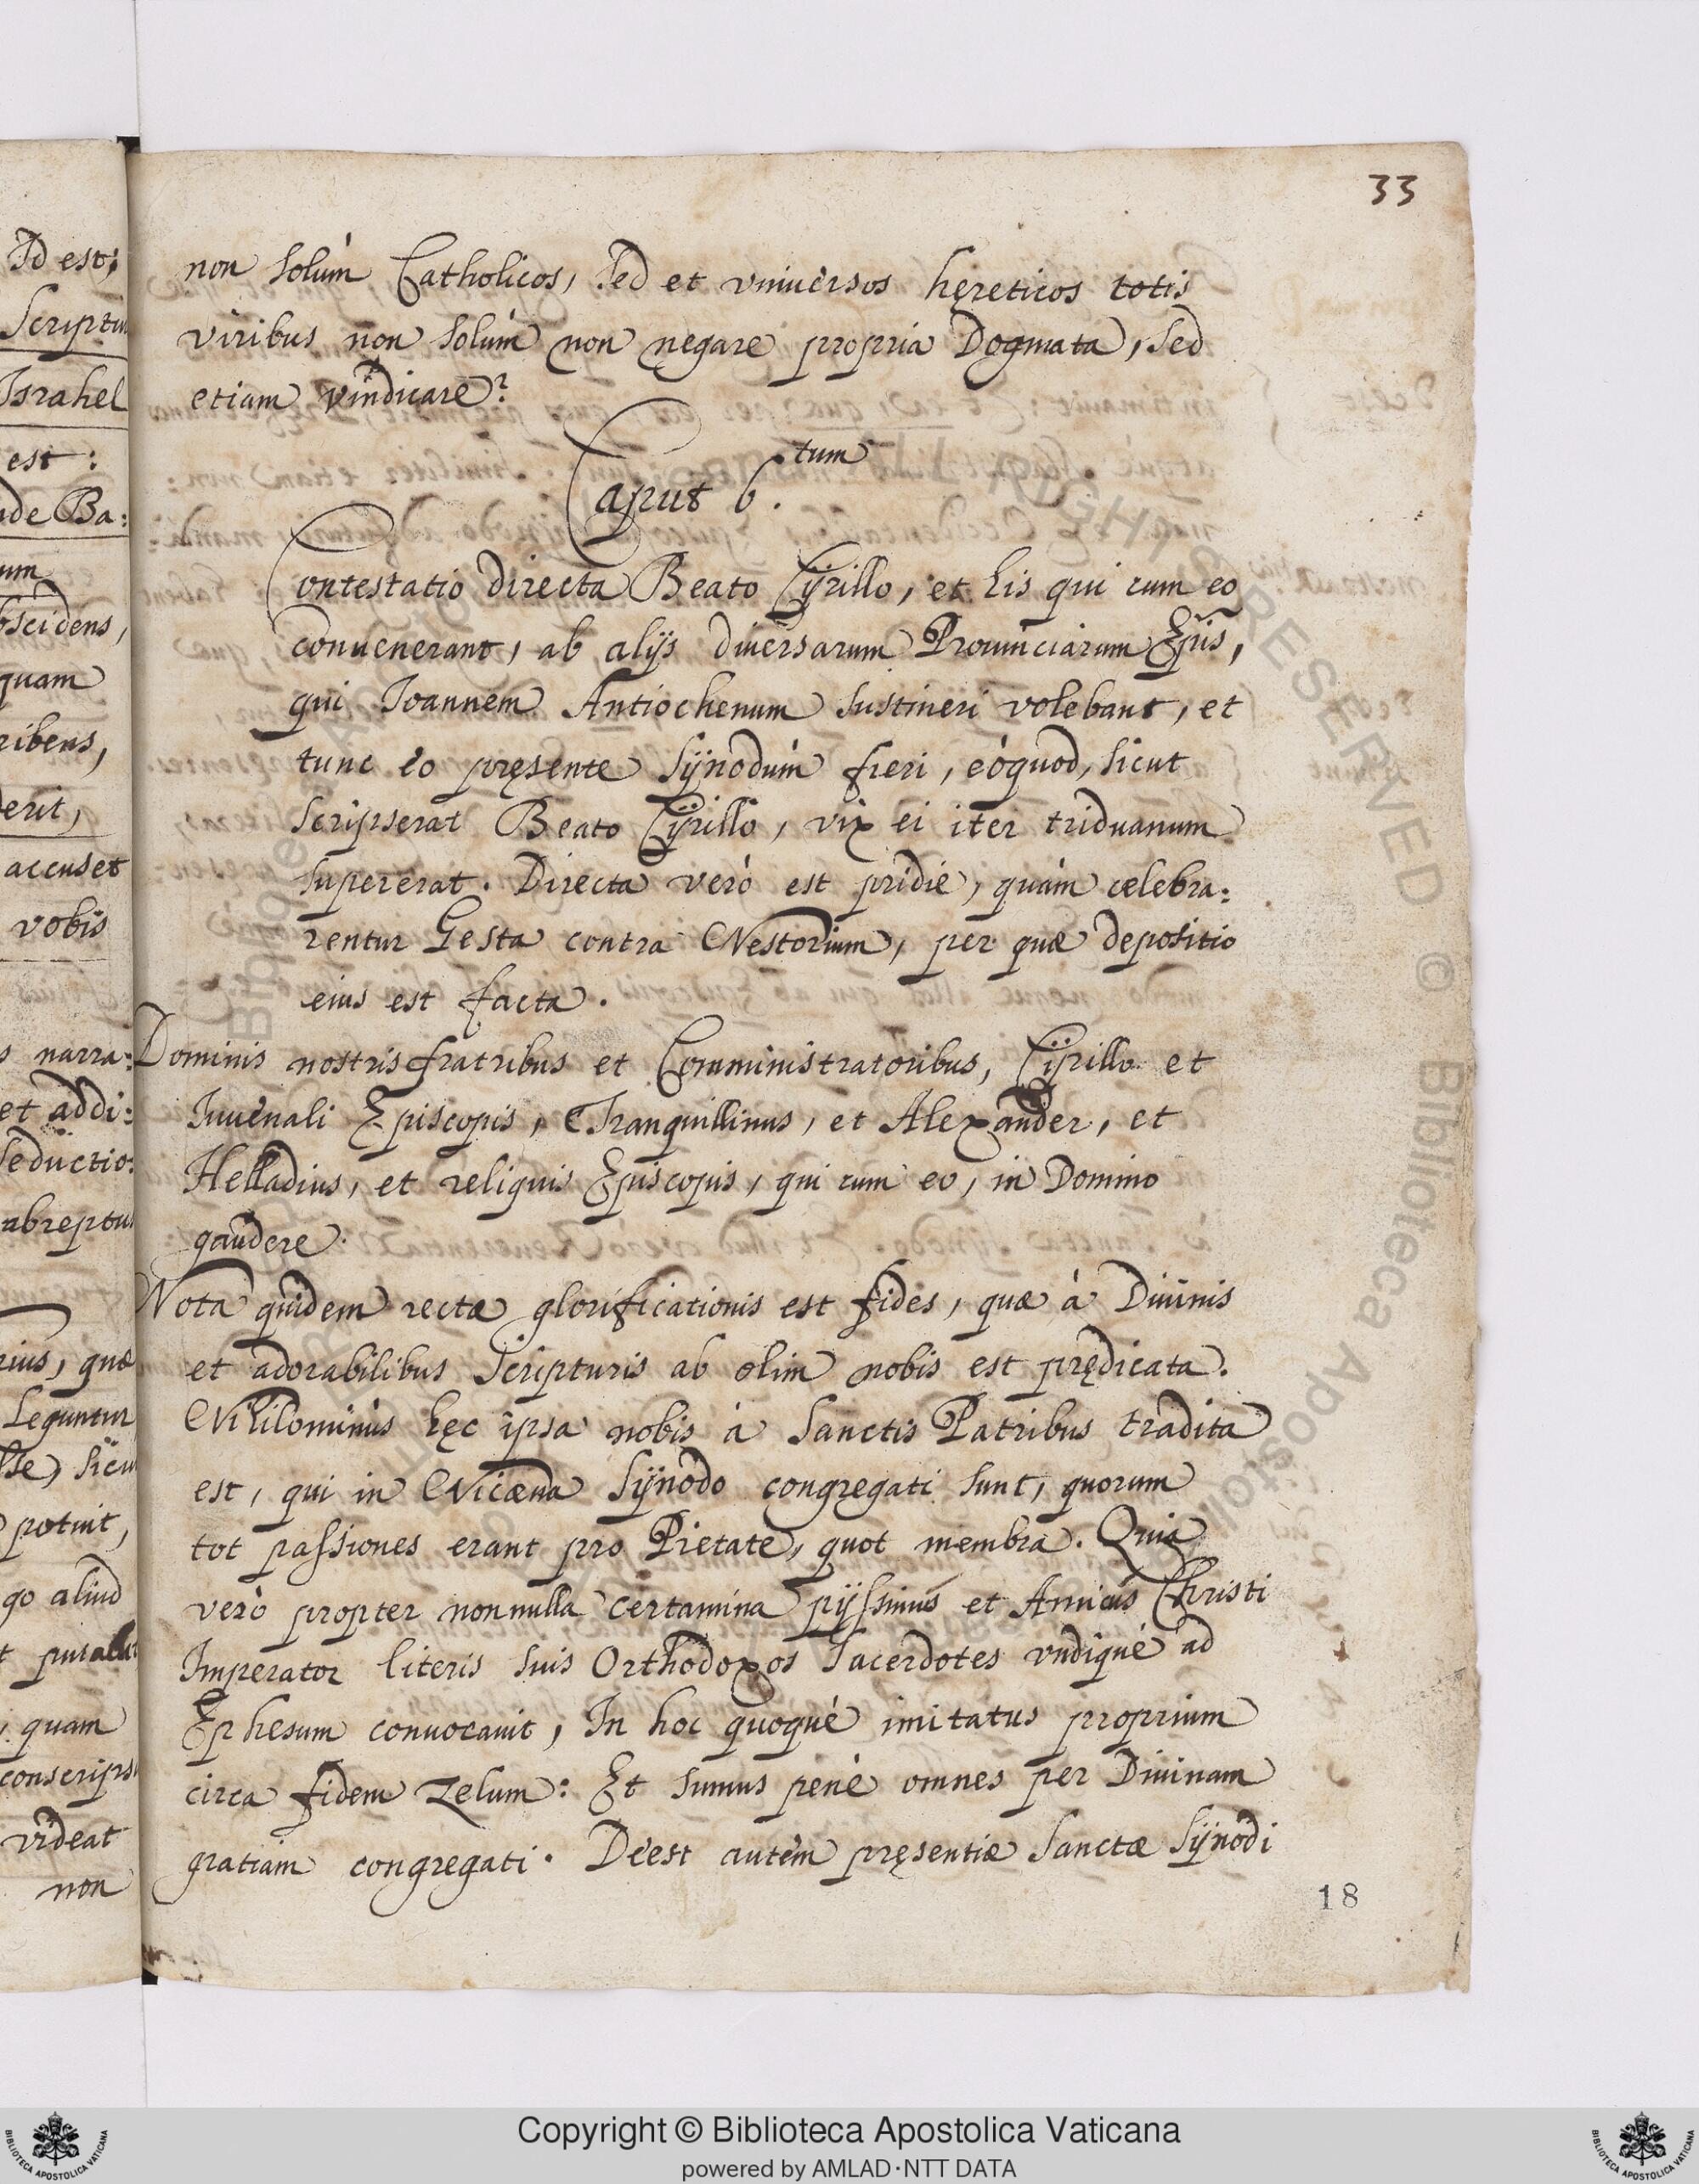 33
non solùm Catholicos, sed et vniuersos hęreticos totis
viribus non solùm non negare propria Dogmata, sed
etiam vindicare?
Caput 6.tum
Contestatio directa Beato Cÿrillo, et his qui cum eo
conuenerant, ab alijs diuersarum Prouinciarum Ep̃is,
qui Ioannem Antiochenum sustineri volebant, et
tunc eo pręsente Sÿnodùm fieri, eòquod, sicut
scripserat Beato Cÿrillo, vix ei iter triduanum
supererat. Directa verò est pridie, quàm celebra:
rentur Gesta contra Nestorium, per quæ depositio
eius est facta.
Dominis nostris fratribus et Comministratoribus, Cÿrillo et
Iuuenali Episcopis, Tranquillinus, et Alexander, et
Helladius, et reliquis Episcopis, qui cum eo, in Domino
gaudere.
Nota quidem rectæ glorificationis est fides, quæ à Diuinis
et adorabilibus Scripturis ab olim nobis est prędicata.
Nihilominùs hęc ipsa nobis à Sanctis Patribus tradita
est, qui in Nicæna Sÿnodo congregati sunt, quorum
tot passiones erant pro Pietate, quot membra. Quia
verò propter nonnulla certamina pijssimus et Amicus Christi
Imperator literis suis Orthodoxos Sacerdotes vndiquè ad
Ephesum conuocauit, In hoc quoquè imitatus proprium
circa fidem zelum: Et sumus penè omnes per Diuinam
gratiam congregati. Deest autèm pręsentiæ Sanctæ Sÿnodi
18
Id est,
Scriptu
Israhel
est:
de Ba:
um
bscidens,
quam
ribens,
erit,
accuset
vobis
s narra:
et addi:
seductio:
abreptu
rius, quæ
Leguntur
sse, sicu
potuit,
go aliud
quam
conscrips
videat
non
Copyright © Biblioteca Apostolica Vaticana
powered by AMLAD·NTT DATA